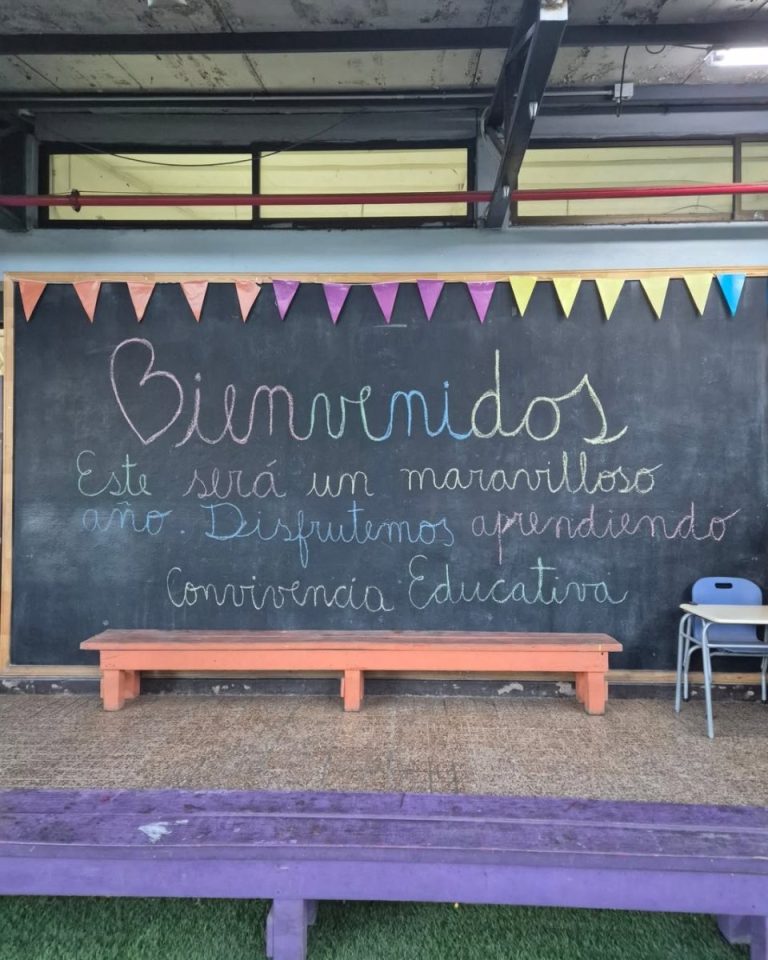 Bienvenidos
Este será un maravilloso
año. Disfrutemos aprendiendo
Convivencia Educativa